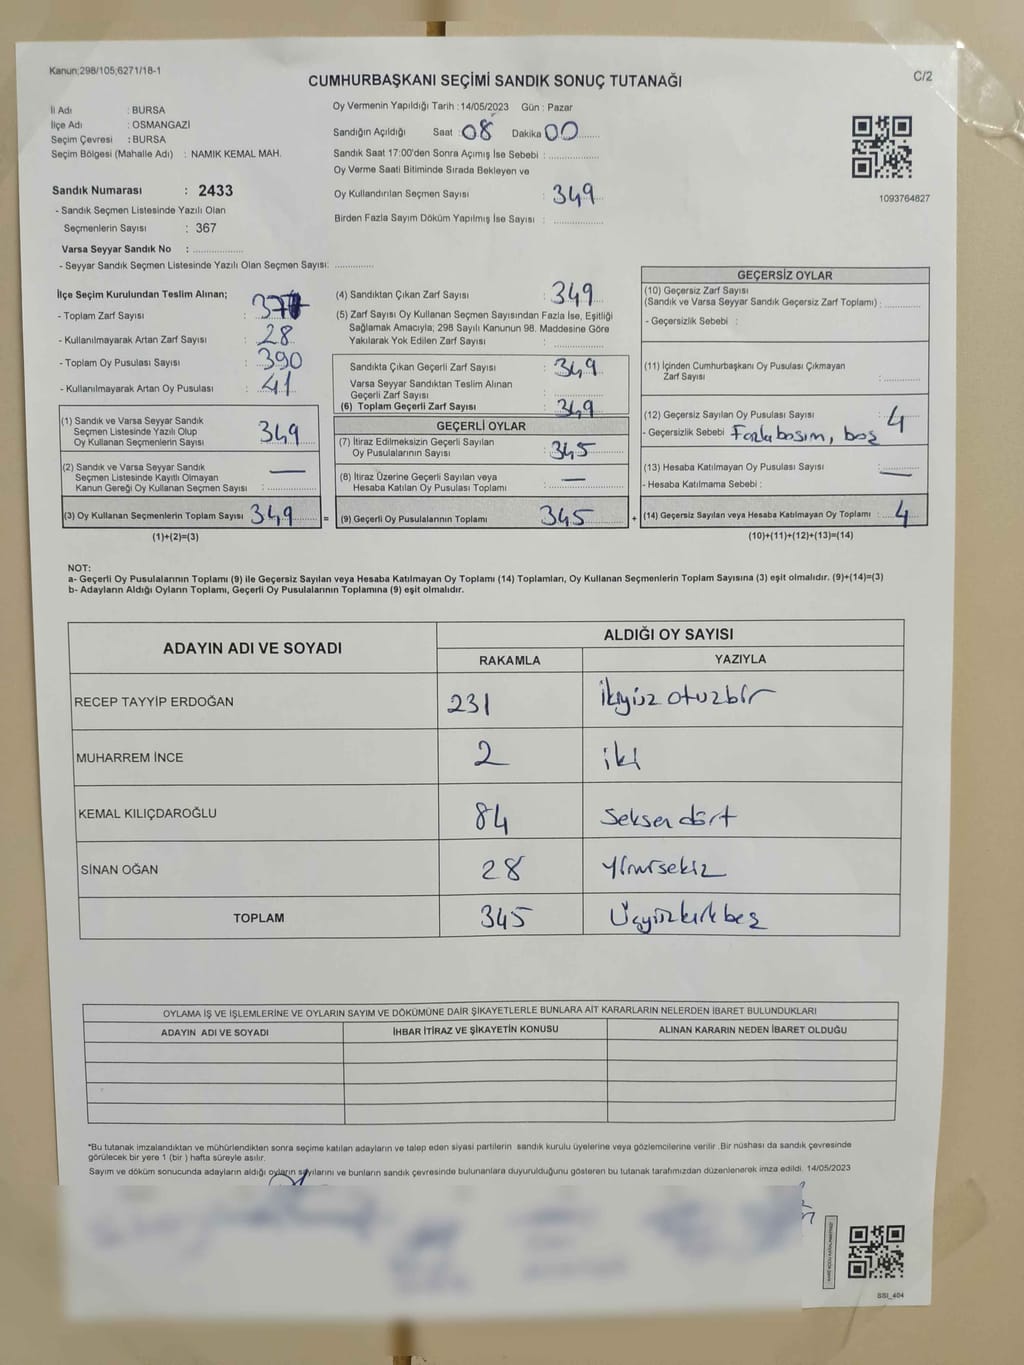 Kanun;298/105;6271/18-1
CUMHURBAŞKANI SEÇİMİ SANDIK SONUÇ TUTANAĞI
C/2
İl Adı : BURSA
İlçe Adı : OSMANGAZİ
Seçim Çevresi : BURSA
Seçim Bölgesi (Mahalle Adı) : NAMIK KEMAL MAH.
Sandık Numarası : 2433
- Sandık Seçmen Listesinde Yazılı Olan
Seçmenlerin Sayısı : 367
Varsa Seyyar Sandık No : ................
- Seyyar Sandık Seçmen Listesinde Yazılı Olan Seçmen Sayısı: ............
Oy Vermenin Yapıldığı Tarih : 14/05/2023 Gün : Pazar
Sandığın Açıldığı Saat : 08 Dakika 00
Sandık Saat 17:00'den Sonra Açımış İse Sebebi : ................
Oy Verme Saati Bitiminde Sırada Bekleyen ve
Oy Kullandırılan Seçmen Sayısı : 349
Birden Fazla Sayım Döküm Yapılmış İse Sayısı : ................
1093764827
İlçe Seçim Kurulundan Teslim Alınan;
- Toplam Zarf Sayısı :
- Kullanılmayarak Artan Zarf Sayısı : 28
- Toplam Oy Pusulası Sayısı : 390
- Kullanılmayarak Artan Oy Pusulası : 41
(1) Sandık ve Varsa Seyyar Sandık
Seçmen Listesinde Yazılı Olup
Oy Kullanan Seçmenlerin Sayısı : 349
(2) Sandık ve Varsa Seyyar Sandık
Seçmen Listesinde Kayıtlı Olmayan
Kanun Gereği Oy Kullanan Seçmen Sayısı : —
(3) Oy Kullanan Seçmenlerin Toplam Sayısı : 349
(1)+(2)=(3)
=
(4) Sandıktan Çıkan Zarf Sayısı : 349
(5) Zarf Sayısı Oy Kullanan Seçmen Sayısından Fazla İse, Eşitliği
Sağlamak Amacıyla; 298 Sayılı Kanunun 98. Maddesine Göre
Yakılarak Yok Edilen Zarf Sayısı : ................
Sandıkta Çıkan Geçerli Zarf Sayısı : 349
Varsa Seyyar Sandıktan Teslim Alınan
Geçerli Zarf Sayısı :
(6) Toplam Geçerli Zarf Sayısı : 349
GEÇERLİ OYLAR
(7) İtiraz Edilmeksizin Geçerli Sayılan
Oy Pusulalarının Sayısı : 345
(8) İtiraz Üzerine Geçerli Sayılan veya
Hesaba Katılan Oy Pusulası Toplamı : —
(9) Geçerli Oy Pusulalarının Toplamı : 345
+
GEÇERSİZ OYLAR
(10) Geçersiz Zarf Sayısı
(Sandık ve Varsa Seyyar Sandık Geçersiz Zarf Toplamı) : ............
- Geçersizlik Sebebi :
(11) İçinden Cumhurbaşkanı Oy Pusulası Çıkmayan
Zarf Sayısı : ............
(12) Geçersiz Sayılan Oy Pusulası Sayısı : 4
- Geçersizlik Sebebi : Fazla basım, boş
(13) Hesaba Katılmayan Oy Pusulası Sayısı : —
- Hesaba Katılmama Sebebi :
(14) Geçersiz Sayılan veya Hesaba Katılmayan Oy Toplamı : 4
(10)+(11)+(12)+(13)=(14)
NOT:
a- Geçerli Oy Pusulalarının Toplamı (9) ile Geçersiz Sayılan veya Hesaba Katılmayan Oy Toplamı (14) Toplamları, Oy Kullanan Seçmenlerin Toplam Sayısına (3) eşit olmalıdır. (9)+(14)=(3)
b- Adayların Aldığı Oyların Toplamı, Geçerli Oy Pusulalarının Toplamına (9) eşit olmalıdır.
ADAYIN ADI VE SOYADI ALDIĞI OY SAYISI
RAKAMLA YAZIYLA
RECEP TAYYİP ERDOĞAN 231 İkiyüz otuzbir
MUHARREM İNCE 2 iki
KEMAL KILIÇDAROĞLU 84 Seksen dört
SİNAN OĞAN 28 Yirmisekiz
TOPLAM 345 Üçyüzkırkbeş
OYLAMA İŞ VE İŞLEMLERİNE VE OYLARIN SAYIM VE DÖKÜMÜNE DAİR ŞİKAYETLERLE BUNLARA AİT KARARLARIN NELERDEN İBARET BULUNDUKLARI
ADAYIN ADI VE SOYADI İHBAR İTİRAZ VE ŞİKAYETİN KONUSU ALINAN KARARIN NEDEN İBARET OLDUĞU
*Bu tutanak imzalandıktan ve mühürlendikten sonra seçime katılan adayların ve talep eden siyasi partilerin sandık kurulu üyelerine veya gözlemcilerine verilir .Bir nüshası da sandık çevresinde
görülecek bir yere 1 (bir ) hafta süreyle asılır.
Sayım ve döküm sonucunda adayların aldığı oyların sayılarını ve bunların sandık çevresinde bulunanlara duyurulduğunu gösteren bu tutanak tarafımızdan düzenlenerek imza edildi. 14/05/2023
SSI_404